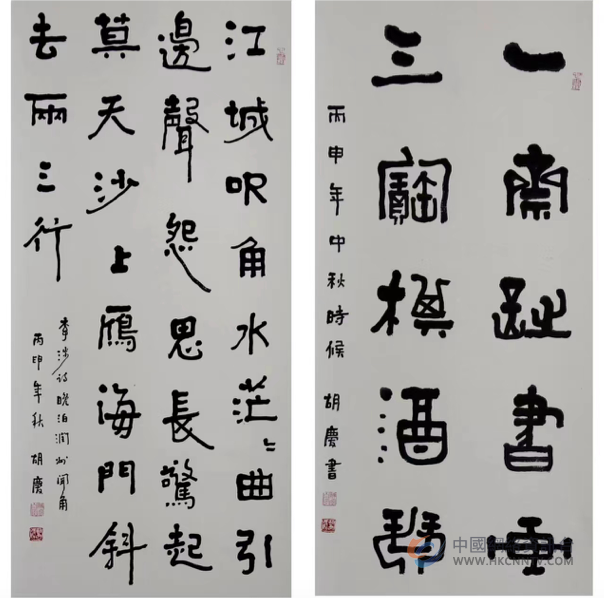 江城吹角水茫〻曲引
邊聲怨思長驚起
莫天沙上鴈海門斜
去兩三行
李涉詩晚泊潤州聞角
丙申年秋 胡慶
一齋書
三寶棋酒琴
丙申年中秋時候 胡慶書
中國網絡台
WWW.HKCNNTV.COM